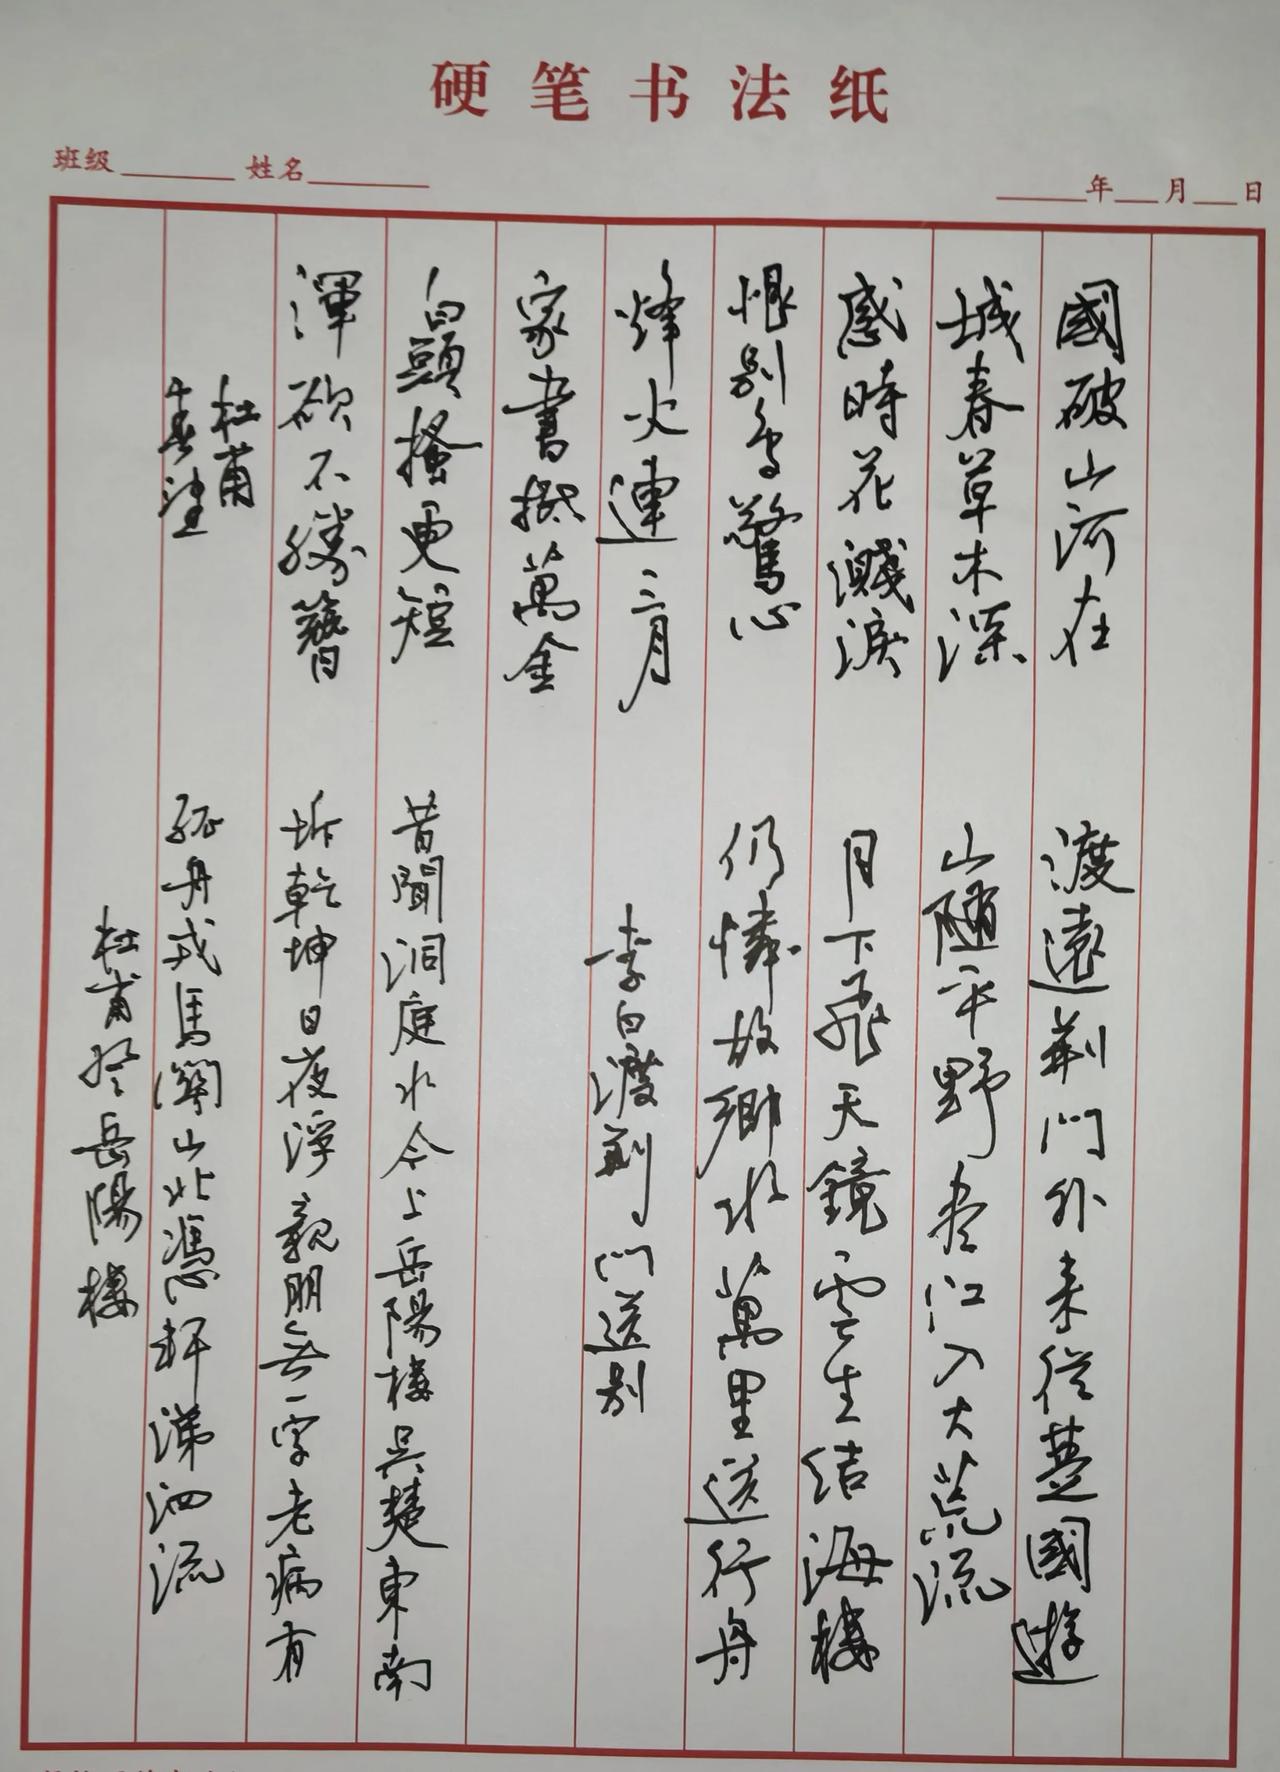 硬笔书法纸
班级 姓名
年 月 日
國破山河在
城春草木深
感時花濺淚
恨别鸟驚心
烽火連三月
家書抵萬金
白頭搔更短
渾欲不勝簪
杜甫
春望
渡遠荆門外来從楚國遊
山随平野盡江入大荒流
月下飛天鏡雲生结海樓
仍憐故鄉水萬里送行舟
李白渡荆門送别
昔聞洞庭水今上岳陽樓吴楚東南
坼乾坤日夜浮親朋無一字老病有
孤舟戎馬關山北憑軒涕泗流
杜甫登岳陽樓